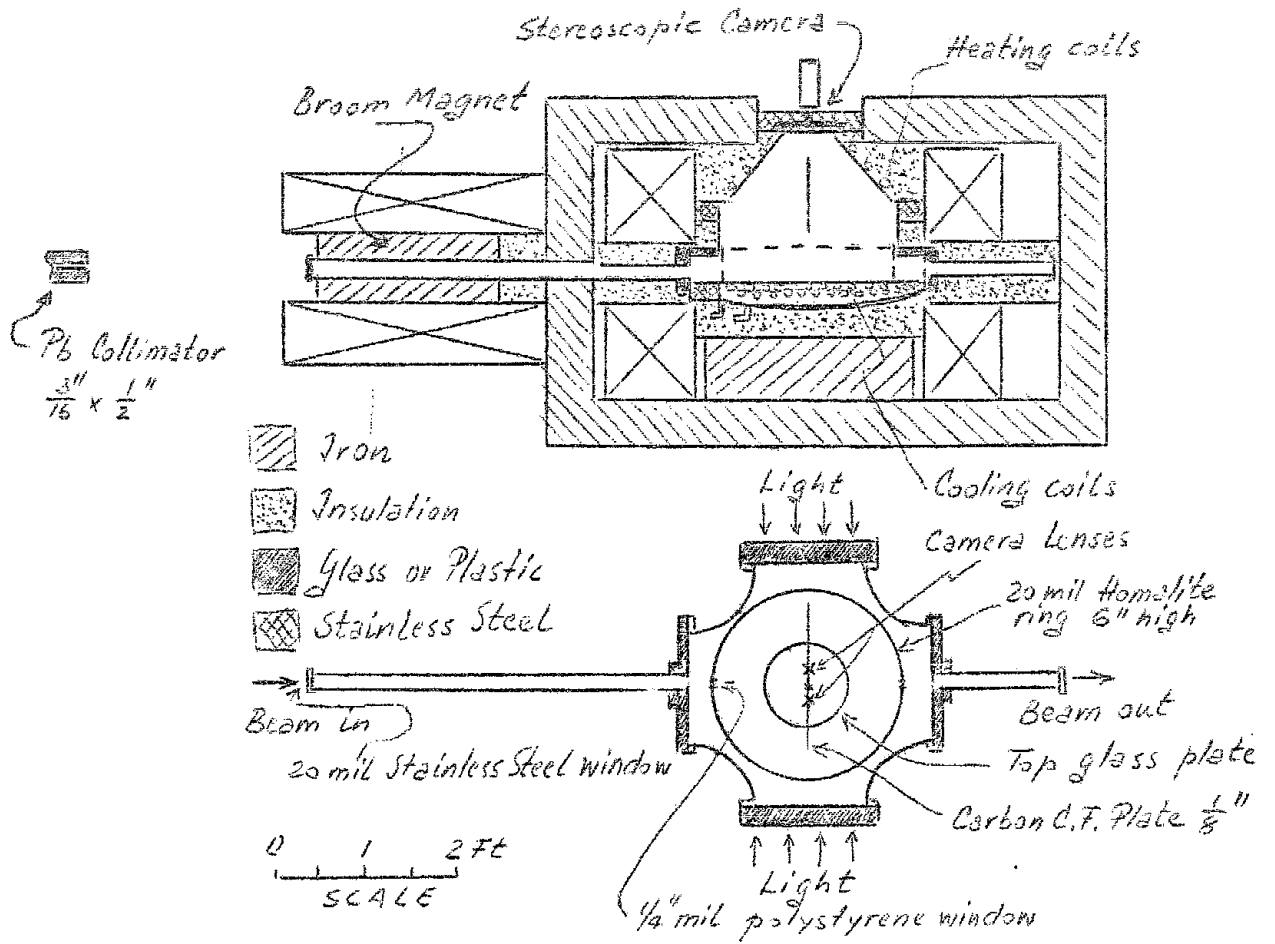 Stereoscopic Camera
Heating coils
Broom Magnet
Pb Collimator
3/16" x 1/2"
Iron
Insulation
Glass or Plastic
Stainless Steel
Cooling coils
Light
Camera Lenses
20 mil Homalite
ring 6" high
Beam in
20 mil Stainless Steel window
Beam out
Top glass plate
Carbon C.F. Plate 1/8"
0 1 2 Ft
SCALE
Light
1/4" mil polystyrene window